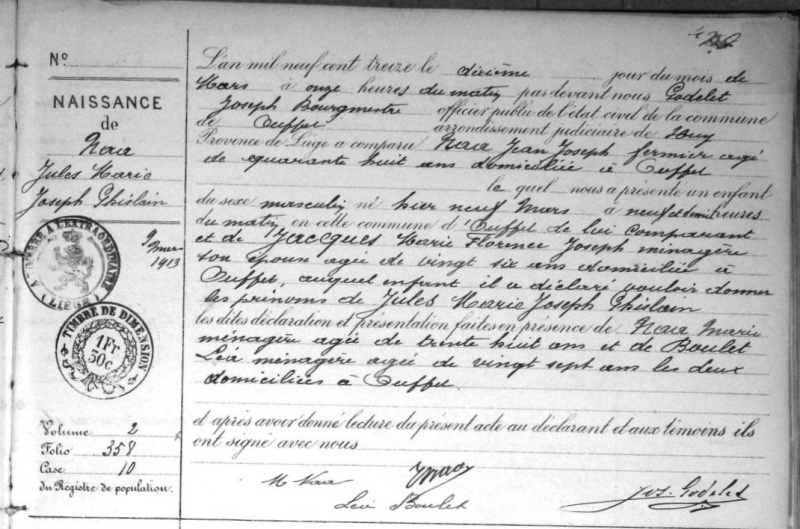 Nº
NAISSANCE
de
Naa
Jules Marie
Joseph Ghislain
9 mars
1913
TIMBRE A L'EXTRAORDINAIRE
(LIÈGE)
TIMBRE DE DIMENSION
1 Fr
30c
Volume 2
Folio 358
Case 10
du Registre de population.
L'an mil neuf cent treize le dixième jour du mois de
Mars à onze heures du matin par devant nous Godelet
Joseph Bourgmestre officier public de l'état civil de la commune
de Ouffet arrondissement judiciaire de Huy
Province de Liége a comparu Naa Jean Joseph fermier agé
de quarante huit ans domiciliée à Ouffet
le quel nous a présenté un enfant
du sexe masculin né hier neuf Mars à neuf et demi heures
du matin en cette commune d'Ouffet de lui comparant
et de Jacques Marie Florence Joseph ménagère
son épouse agée de vingt six ans domiciliée à
Ouffet, auquel enfant il a déclaré vouloir donner
les prénoms de Jules Marie Joseph Ghislain
les dites déclaration et présentation faites en présence de Naa Marie
ménagère agée de trente huit ans et de Boulet
Léa ménagère agée de vingt sept ans les deux
domiciliées à Ouffet.
et après avoir donné lecture du présent acte au déclarant et aux témoins ils
ont signé avec nous
M Naa
Léa Boulet
Jos. Godelet